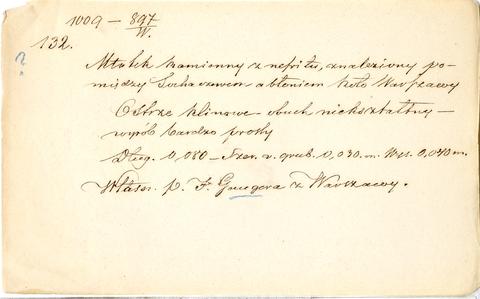 1009 — 897/W.
132.
?
Młotek kamienny z nefritu, znaleziony po-
między Sochaczewem a Błoniem koło Warszawy
Ostrze klinowe — obuch niekształtny —
wyrób bardzo prosty
Dług. 0,080 — Szer. v. grub. 0,030. m. Wys. 0,040 m.
Własn. p. F. Gregera z Warszawy.